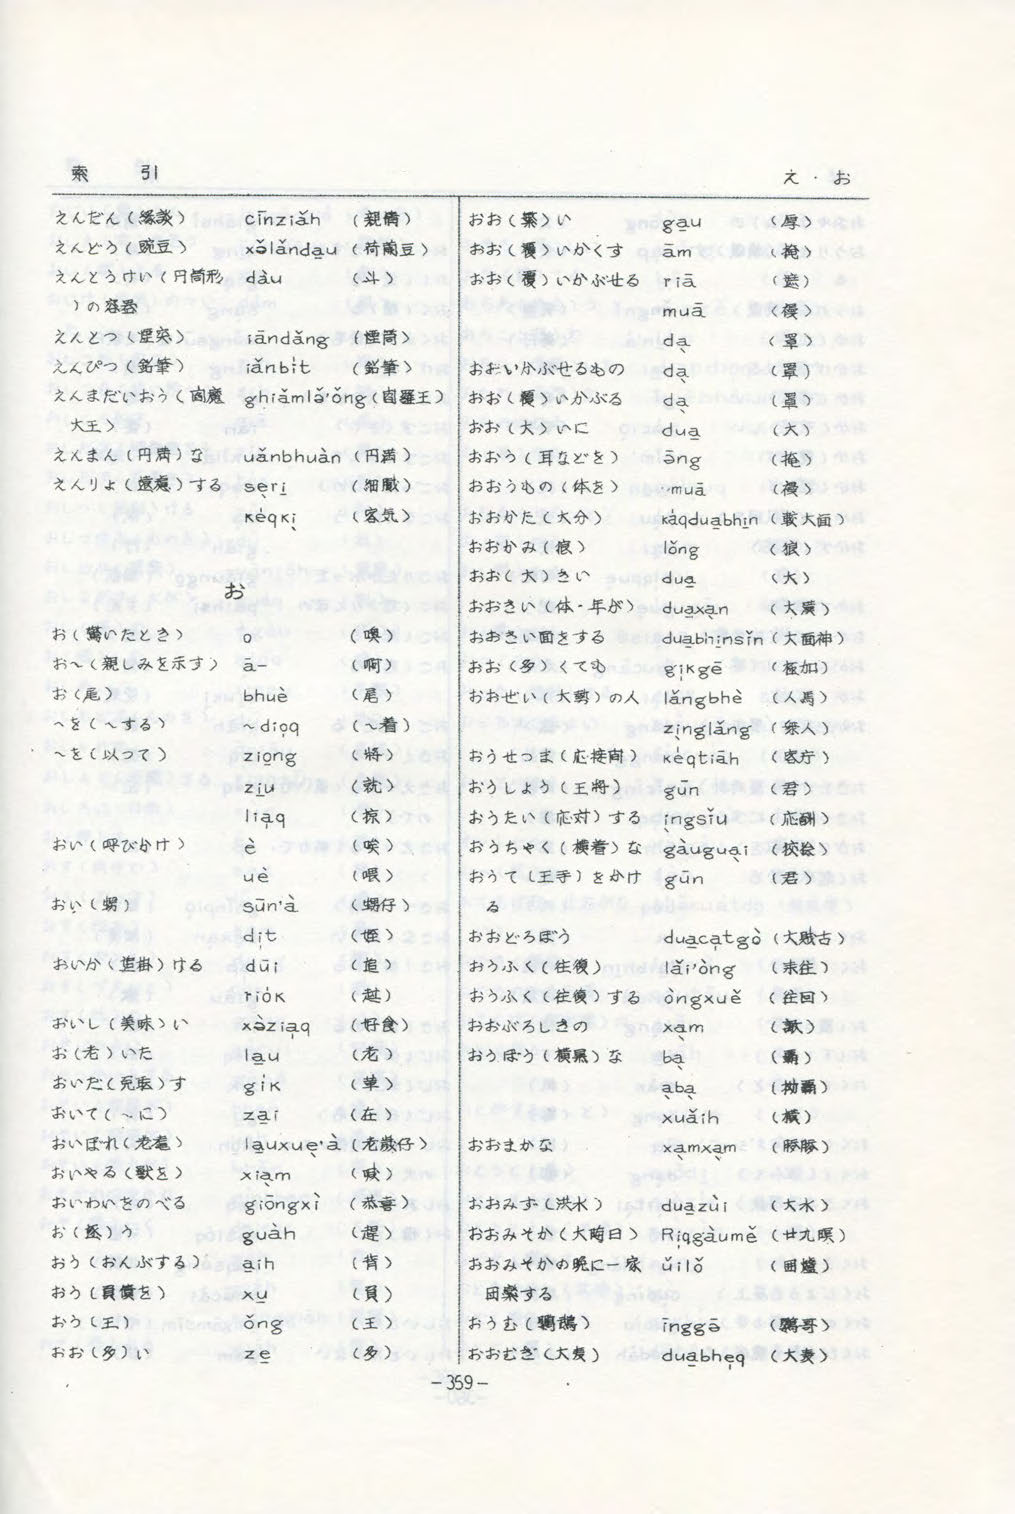 索 引
え・お
えんだん(縁談) cīnziǎh (親情)
えんどう(豌豆) xǒlǎnda̲u (荷蘭豆)
えんとうけい(円筒形 dàu (斗)
)の容器
えんとつ(煙突) iāndǎng (煙筒)
えんぴつ(鉛筆) iǎnbi̍t (鉛筆)
えんまだいおう(閻魔 ghiāmlǒ'ǒng (閻羅王)
大王)
えんまん(円満)な uǎnbhuàn (円満)
えんりょ(遠慮)する se̖ri̲ (細膩)
κe̍qκi̖ (客気)
お
お(驚いたとき) o (噢)
お〜(親しみを示す) ā- (啊)
お(尾) bhuè (尾)
〜を(〜する) 〜dio̩q (〜着)
〜を(以って) zio̲ng (将)
zi̲u (就)
lia̩q (掠)
おい(呼びかけ) è (唉)
uè (喂)
おい(甥) sūn'à (甥仔)
di̩t (姪)
おいか(追掛)ける dūi (追)
rio̍κ (越)
おいし(美味)い xə̀zia̩q (好食)
お(老)いた la̲u (老)
おいだ(死取)す gi̍κ (革)
おいて(〜に) za̲i (在)
おいぼれ(老耄) la̲uxue̖'à (老歲仔)
おいやる(獣を) xia̖m (喊)
おいわいをのべる giōngxì (恭喜)
お(逐)う guàh (趕)
おう(おんぶする) a̲ih (背)
おう(負債を) xu̲ (負)
おう(王) ǒng (王)
おお(多)い ze̲ (多)
おお(繁)い ga̲u (厚)
おお(覆)いかくす ām (掩)
おお(覆)いかぶせる riā (遮)
muā (幔)
da̖ (罩)
おおいかぶせるもの da̖ (罩)
おお(覆)いかぶる da̖ (罩)
おお(大)いに dua̲ (大)
おおう(耳などを) ōng (掩)
おおうもの(体を) muā (幔)
おおかた(大分) κa̍qdua̲bhi̲n (較大面)
おおかみ(狼) lǒng (狼)
おお(大)きい dua̲ (大)
おおきい(体・年が) dua̲xa̖n (大漢)
おおきい面をする dua̲bhi̲nsǐn (大面神)
おお(多)くても gi̩κgē (極加)
おおぜい(大勢)の人 lǎngbhè (人馬)
zi̖nglǎng (衆人)
おうせつま(応接間) κe̍qtiāh (客庁)
おうしよう(王将) gūn (君)
おうたい(応対)する i̖ngsǐu (応酬)
おうちゃく(横着)な gàugua̖i (狡獪)
おうて(王手)をかけ gūn (君)
る
おおどろぼう dua̲ca̩tgò (大賊古)
おうふく(往復) lǎi'òng (来往)
おうふく(往復)する òngxuě (往回)
おおぶろしきの xa̖m (歁)
おうぼう(横暴)な ba̖ (覇)
a̖ba̖ (拗覇)
xuǎih (横)
おおまかな xa̖mxa̖m
おおみず(洪水) dua̲zùi (大水)
おおみそか(大晦日) Ri̩qgàumě (廿九暝)
おおみそかの晩に一家 ǔilǒ (囲爐)
団欒する
おうむ(鸚鵡) īnggə̄ (鸚哥)
おおむぎ(大麦) dua̲bhe̩q (大麦)
-359-